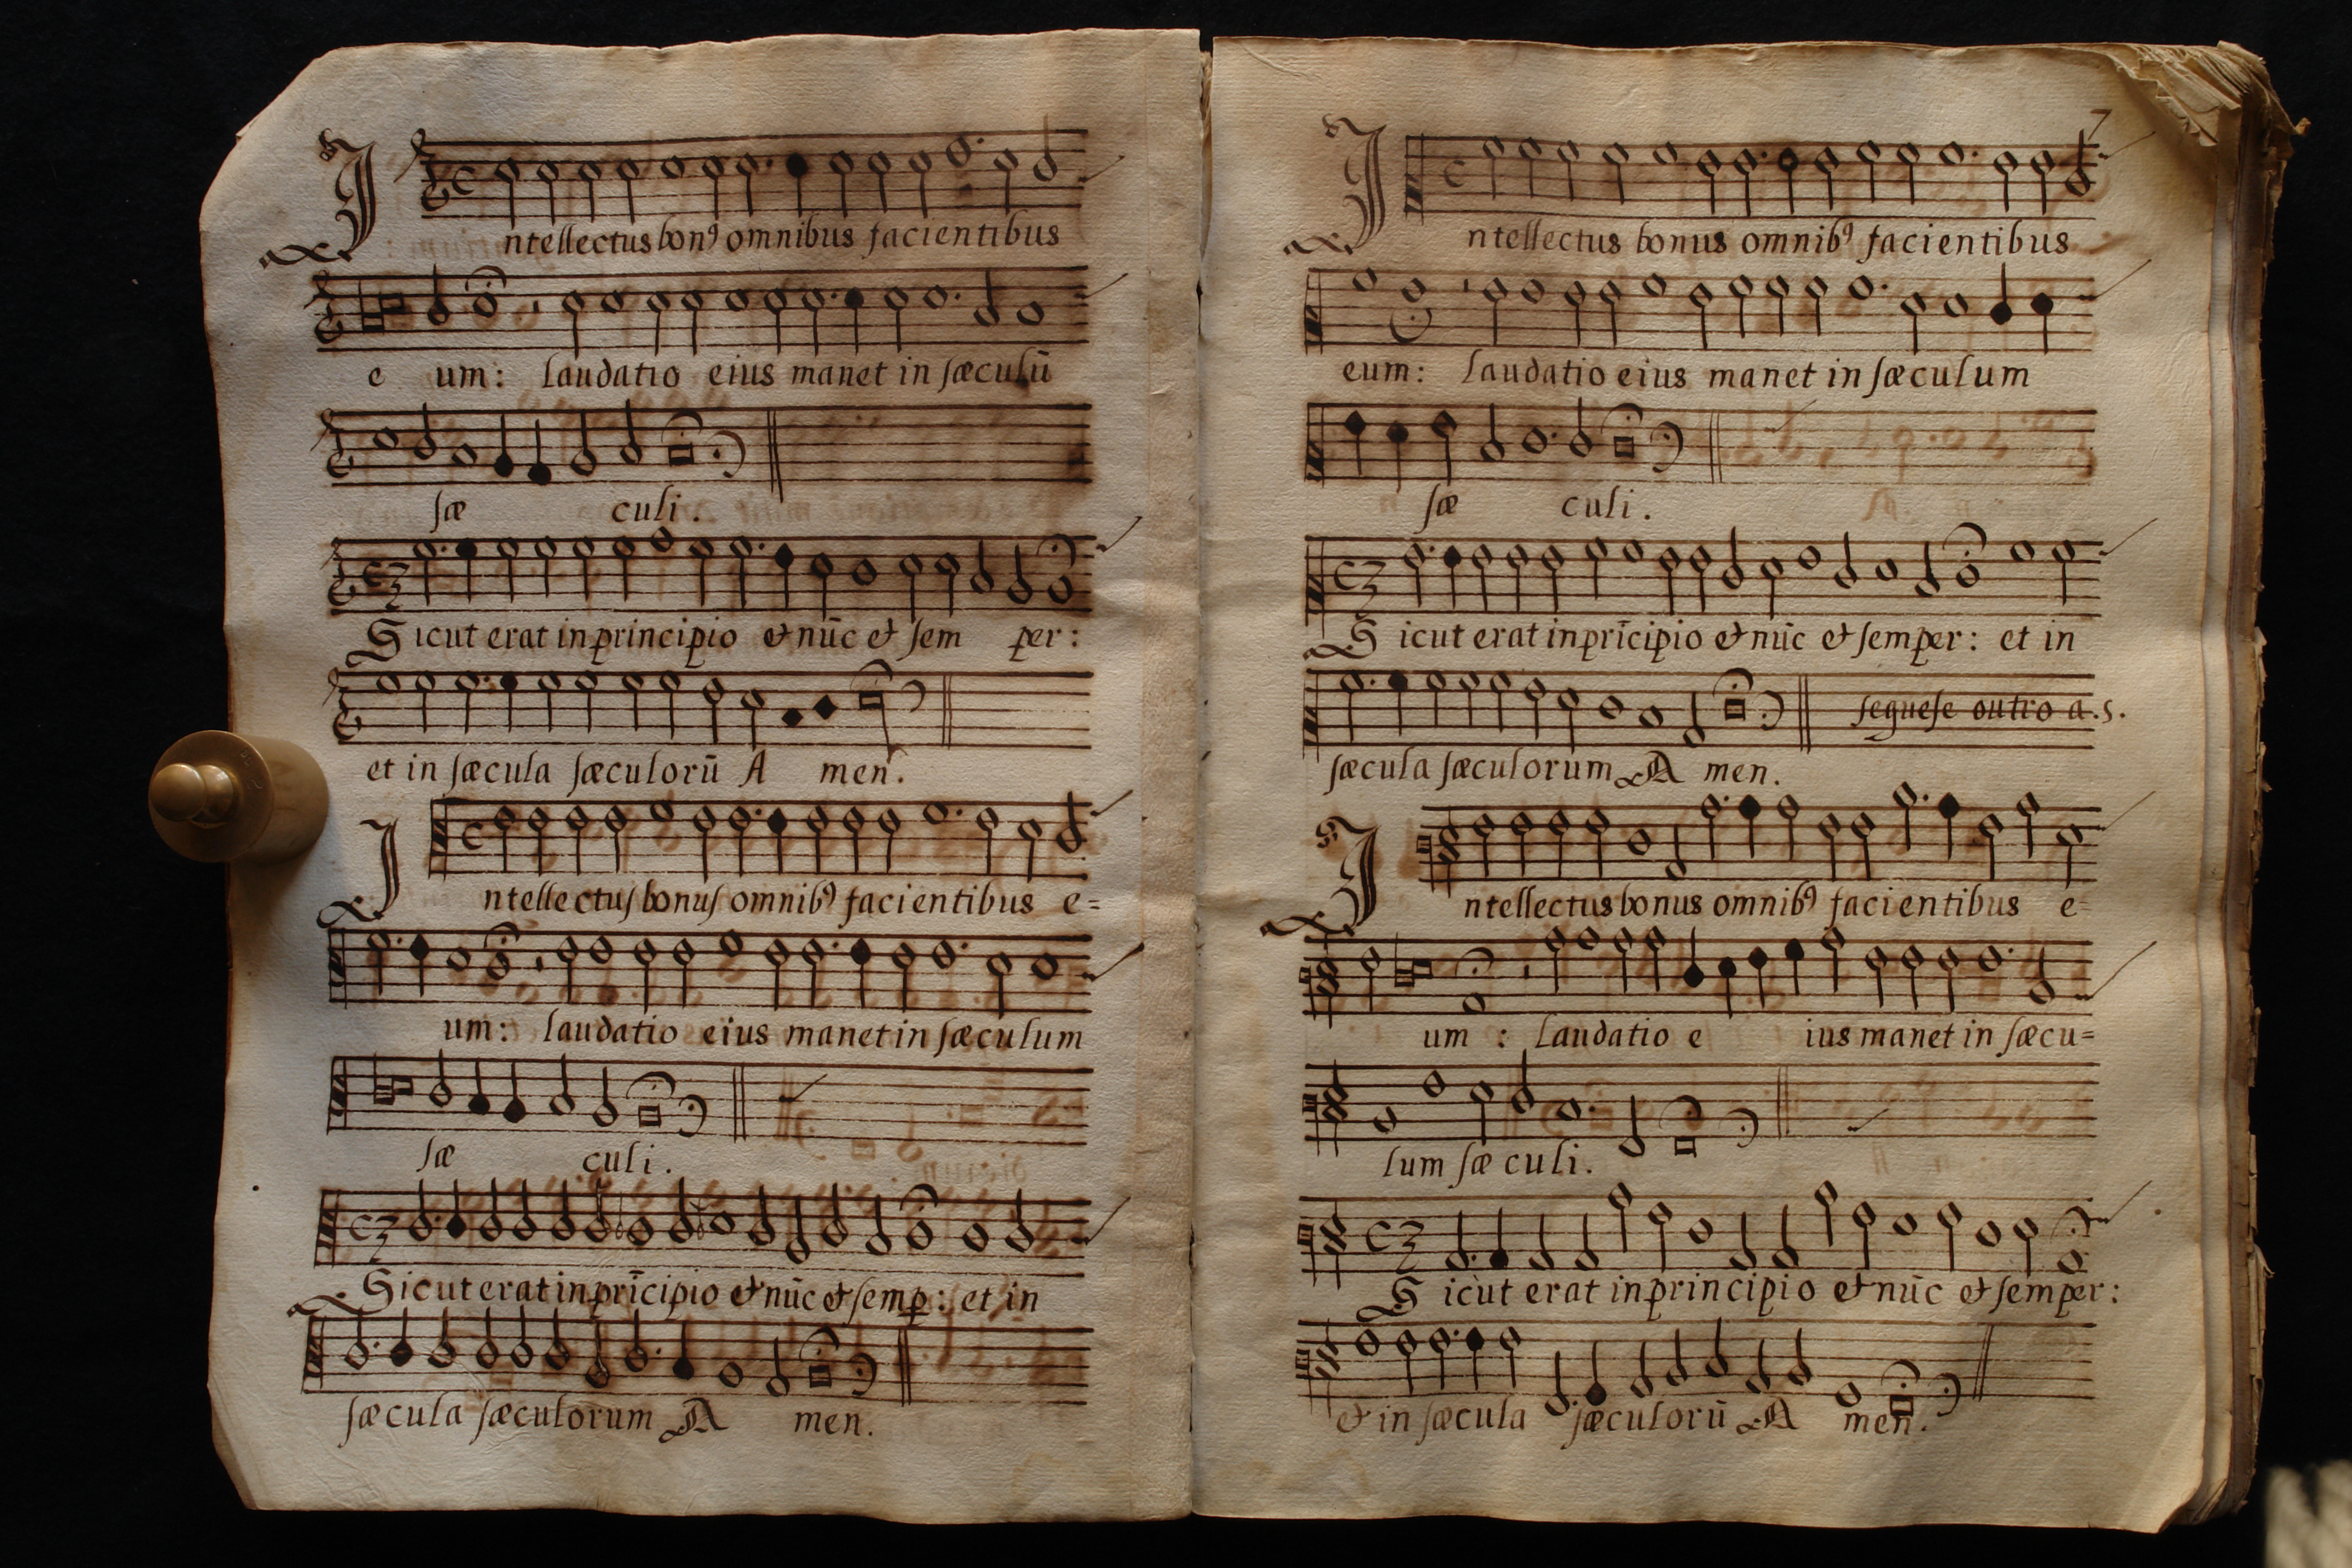 Intellectus bonꝰ omnibus facientibus
e um: laudatio eius manet in sæculū
sæ culi.
Sicut erat in principio et nūc et sem per:
et in sæcula sæculorū A men.
Intellectus bonus omnibꝰ facientibus e=
um: laudatio eius manet in sæculum
sæ culi.
Sicut erat in prīcipio et nūc et semꝑ: et in
sæcula sæculorum A men.
7
Intellectus bonus omnibꝰ facientibus
eum: laudatio eius manet in sæculum
sæ culi.
Sicut erat in prīcipio et nūc et semper: et in
seguese outro a.s.
sæcula sæculorum A men.
Intellectus bonus omnibꝰ facientibus e=
um: laudatio e ius manet in sæcu=
lum sæ culi.
Sicut erat in principio et nūc et semper:
et in sæcula sæculorū A men.